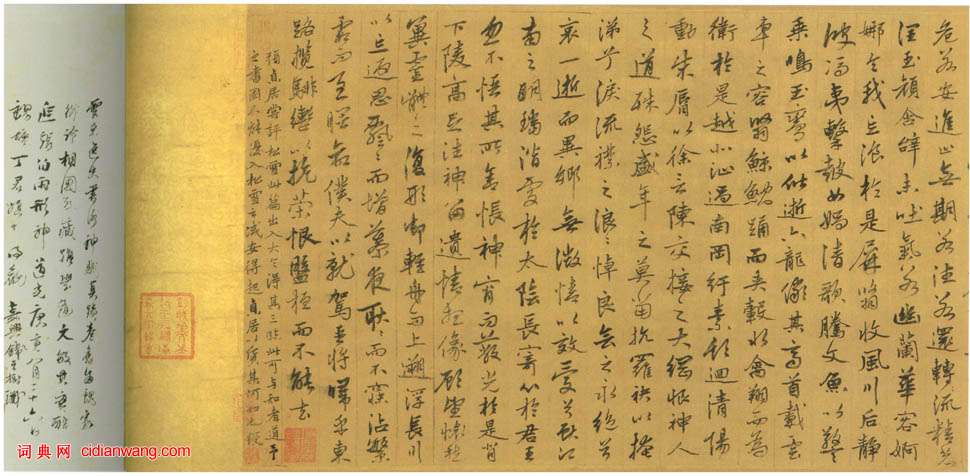 危若安進止無期若往若還轉流精
潤玉顔含辭未吐氣若幽蘭華容婀
娜令我忘於是屏翳收風川后靜
波馮夷擊鼓女媧清歌騰文魚以警
乘鳴玉鸞以偕逝六龍儼其高首載雲
車之容裔鯨鯢踊而夾轂水禽翔而為
衛於是越北沚過南岡紆素領迴清陽
動朱脣以徐言陳交接之大綱恨神人
之道殊怨盛年之莫當抗羅袂以掩
涕兮淚流襟之浪浪悼良會之永絕兮
哀一逝而異鄉無微情以效愛兮獻江
南之明璫雖潛處於太陰長寄心於君王
忽不悟其所舍悵神宵而蔽光於是背
下陵高足往神留遺情想像顧望懷愁
冀靈體之復形御輕舟而上遡浮長川
以忘返思而增慕夜耿耿而不寐沾繁
霜而至曙命僕夫以就駕吾將歸乎東
路攬騑轡以抗策恨盤桓而不能去
真居嘗評松雪此篇出入大令得其三昧此可與知者道予
之書固不能入松雪
書洛神賦真跡
形神道光庚寅八月二十六日
丁君 嘉興錢
词典网 cidianwang.com